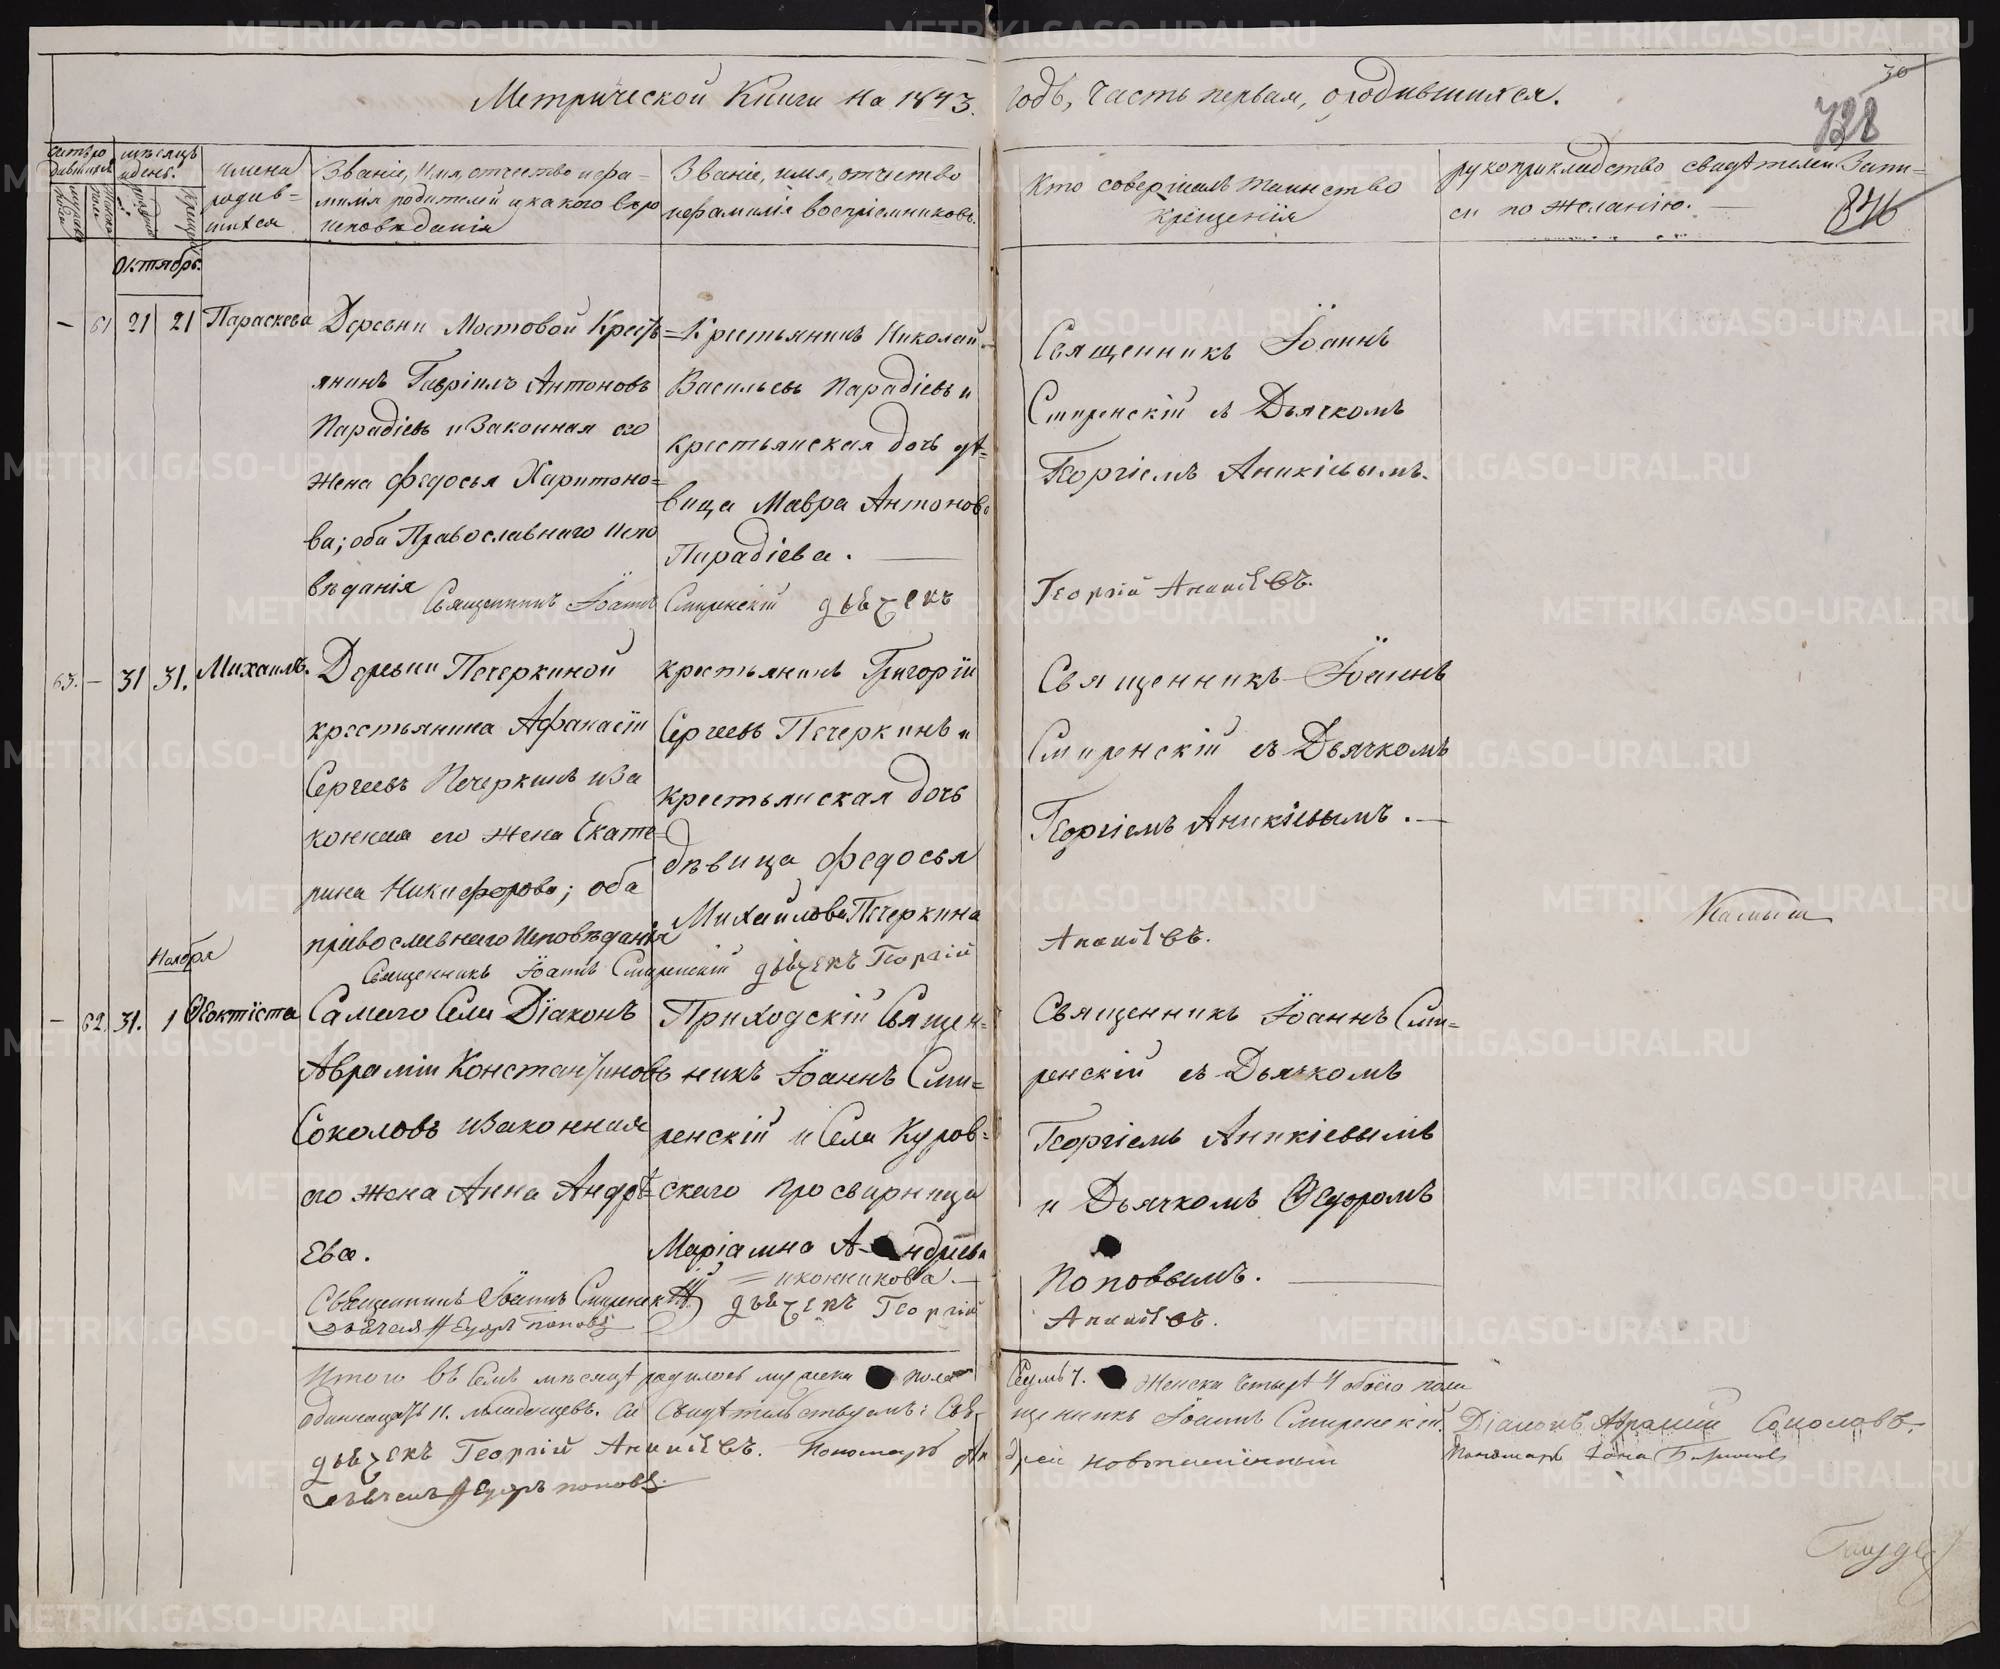 Метрической Книги на 1843.
годъ, часть первая, о родившихся.
30
728
876
мѣсяцъ
и день.
имена
родив-
шихся
Званіе, имя, отчество и фа-
милія родителей и какого вѣро
исповѣданія
Званіе, имя, отчество
и фамилія воспріемниковъ.
Кто совершалъ таинство
крещенія
рукоприкладство свидѣтелей Запи-
си по желанію.
Октябрь.
— 61 21 21 Параскева
Деревни Мостовой Кресть=
янинъ Гавріилъ Антоновъ
Парадіевъ и Законная его
жена Федосья Харитоно=
ва; оба Православнаго испо
вѣданія
Крестьянинъ Николай
Васильевъ Парадіевъ и
крестьянская дочь дѣ=
вица Мавра Антонова
Парадіева.
Священникъ Іоаннъ
Смиренскій съ Дьячкомъ
Георгіемъ Аникіевымъ.
Священникъ Іоаннъ Смиренскій дьячекъ Георгій Аникіевъ.
63. — 31 31. Михаилъ.
Деревни Печеркиной
крестьянина Афанасій
Сергеевъ Печеркинъ и За
конная его жена Екате=
рина Никифорова; оба
православнаго Исповѣданія
крестьянинъ Григорій
Сергеевъ Печеркинъ и
крестьянская дочь
дѣвица Федосья
Михайлова Печеркина
Священникъ Іоаннъ
Смиренскій съ Дьячкомъ
Георгіемъ Аникіевымъ.
Священникъ Іоаннъ Смиренскій дьячекъ Георгій Аникіевъ.
Ноября
— 62. 31. 1 Ѳеоктіста
Самаго Села Діаконъ
Аврамій Константиновъ
Соколовъ и Законная
его жена Анна Андрѣ=
ева.
Приходскій Священ=
никъ Іоаннъ Сми=
ренскій и Села Куров=
скаго просвирница
Маріамна Андреева
= иконникова.
Священникъ Іоаннъ Сми=
ренскій съ Дьячкомъ
Георгіемъ Аникіевымъ
и Дьячкомъ Ѳедоромъ
Поповымъ.
Священникъ Іоаннъ Смиренскій дьячекъ Георгій Аникіевъ.
Ѳедоръ Поповъ
Итого въ семъ мѣсяцѣ родилось мужеска пола Семь 7. Женска четыре 4 обоего пола
одинадцать 11. младенцевъ. Свидѣтельствуемъ: Священникъ Іоаннъ Смиренскій. Діаконъ Аврамій Соколовъ.
дьячекъ Георгій Аникіевъ. Пономарь Андрей
Пономарь
Ѳедоръ Поповъ.
METRIKI.GASO-URAL.RU